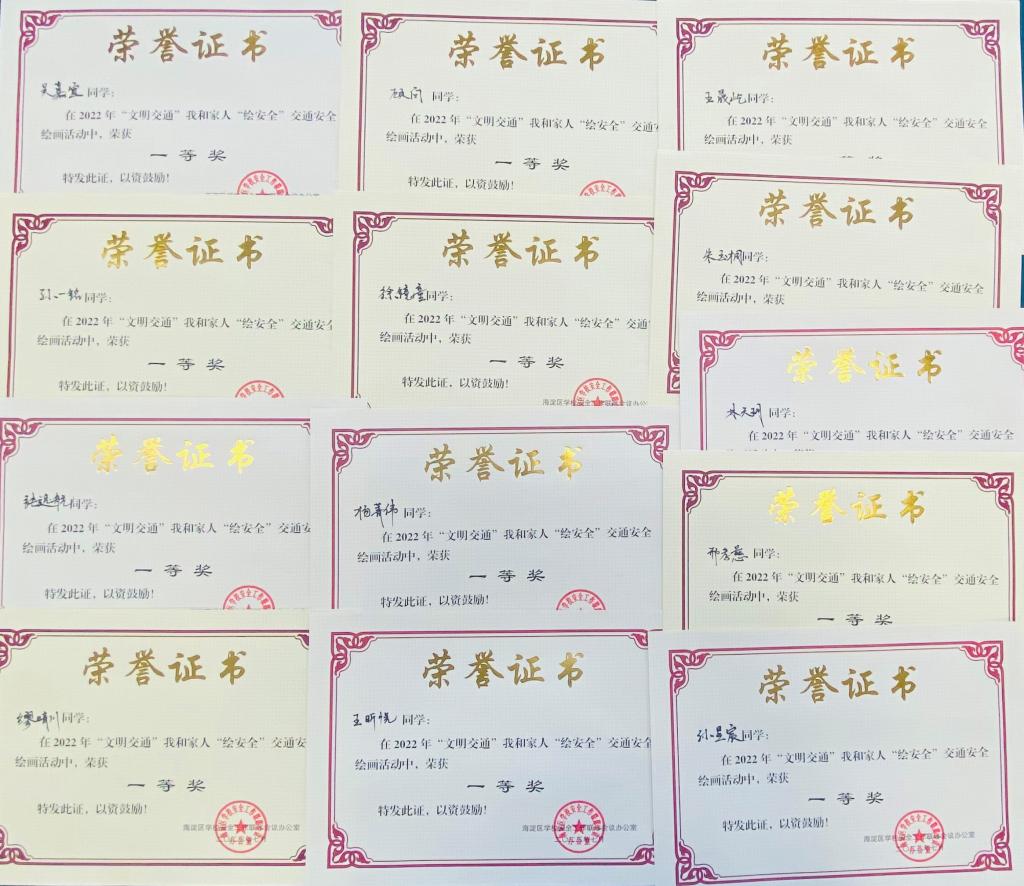 荣誉证书
吴嘉宜 同学：
在 2022 年“文明交通”我和家人“绘安全”交通安全
绘画活动中，荣获
一 等 奖
特发此证，以资鼓励！
荣誉证书
顾问 同学：
在 2022 年“文明交通”我和家人“绘安全”交通安
绘画活动中，荣获
一 等 奖
特发此证，以资鼓励！
荣誉证书
王晟屹同学：
在 2022 年“文明交通”我和家人“绘安全”交通安全
绘画活动中，荣获
荣誉证书
孙一铭同学：
在 2022 年“文明交通”我和家人“绘安全”交通安全
绘画活动中，荣获
一 等 奖
特发此证，以资鼓励！
荣誉证书
徐 童同学：
在 2022 年“文明交通”我和家人“绘安全”交通安
绘画活动中，荣获
一 等 奖
特发此证，以资鼓励！
海淀区学校安全工作联席会议办公
荣誉证书
朱玉桐同学：
在 2022 年“文明交通”我和家人“绘安全”交通安全
绘画活动中，荣获
荣誉证书
林天玥 同学：
在 2022 年“文明交通”我和家人“绘安全”交通安全
荣誉证书
张远航同学：
在 2022 年“文明交通”我和家人“绘安全”交通安
绘画活动中，荣获
一 等 奖
特发此证，以资鼓励！
荣誉证书
杨 伟 同学：
在 2022 年“文明交通”我和家人“绘安全”交通安全
绘画活动中，荣获
一 等 奖
特发此证，以资鼓励！
荣誉证书
邢 慈 同学：
在 2022 年“文明交通”我和家人“绘安全”交通安全
绘画活动中，荣获
一 等 奖
荣誉证书
缪晴川同学：
在 2022 年“文明交通”我和家人“绘安全”交通安
绘画活动中，荣获
一 等 奖
特发此证，以资鼓励！
海淀区学校安全工作联席会议办公室
荣誉证书
王昕悦 同学：
在 2022 年“文明交通”我和家人“绘安全”交通安全
绘画活动中，荣获
一 等 奖
特发此证，以资鼓励！
海淀区学校安全工作联席会议办公室
荣誉证书
孙昱宸同学：
在 2022 年“文明交通”我和家人“绘安全”交通安全
绘画活动中，荣获
一 等 奖
特发此证，以资鼓励！
海淀区学校安全工作联席会议办公室